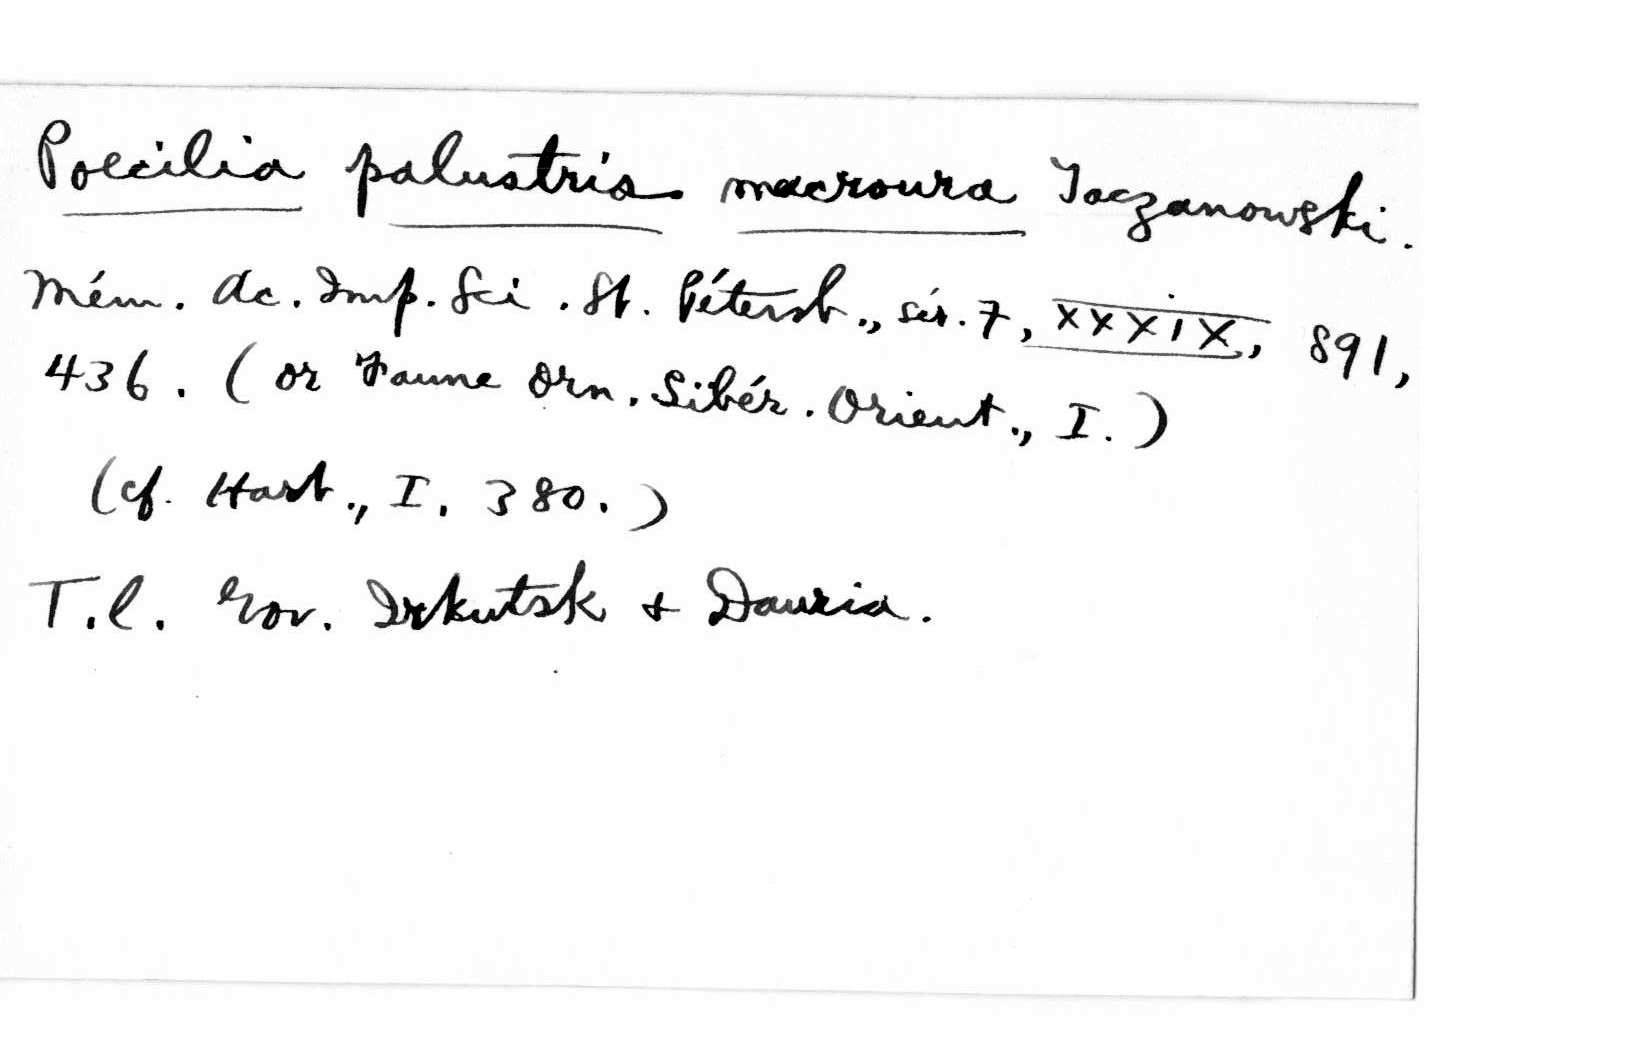 Poecilia palustris macroura Taczanowski.
Mém. Ac. Imp. Sci. St. Pétersb., sér. 7, XXXIX, 891,
436. (or Faune Orn. Sibér. Orient., I.)
(cf. Hart., I. 380.)
T.l. Gov. Irkutsk & Dauria.